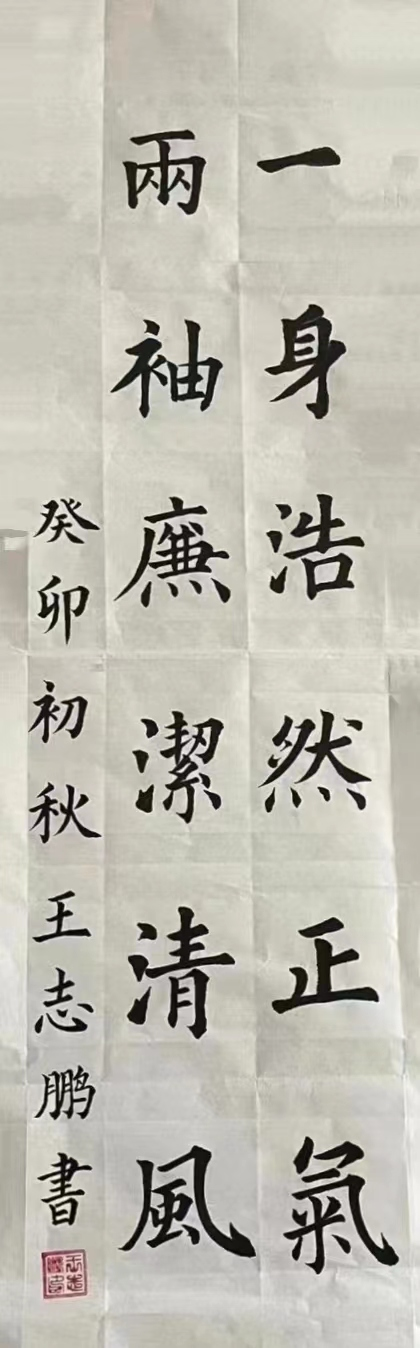 一身浩然正氣
兩袖廉潔清風
癸卯初秋王志鹏書